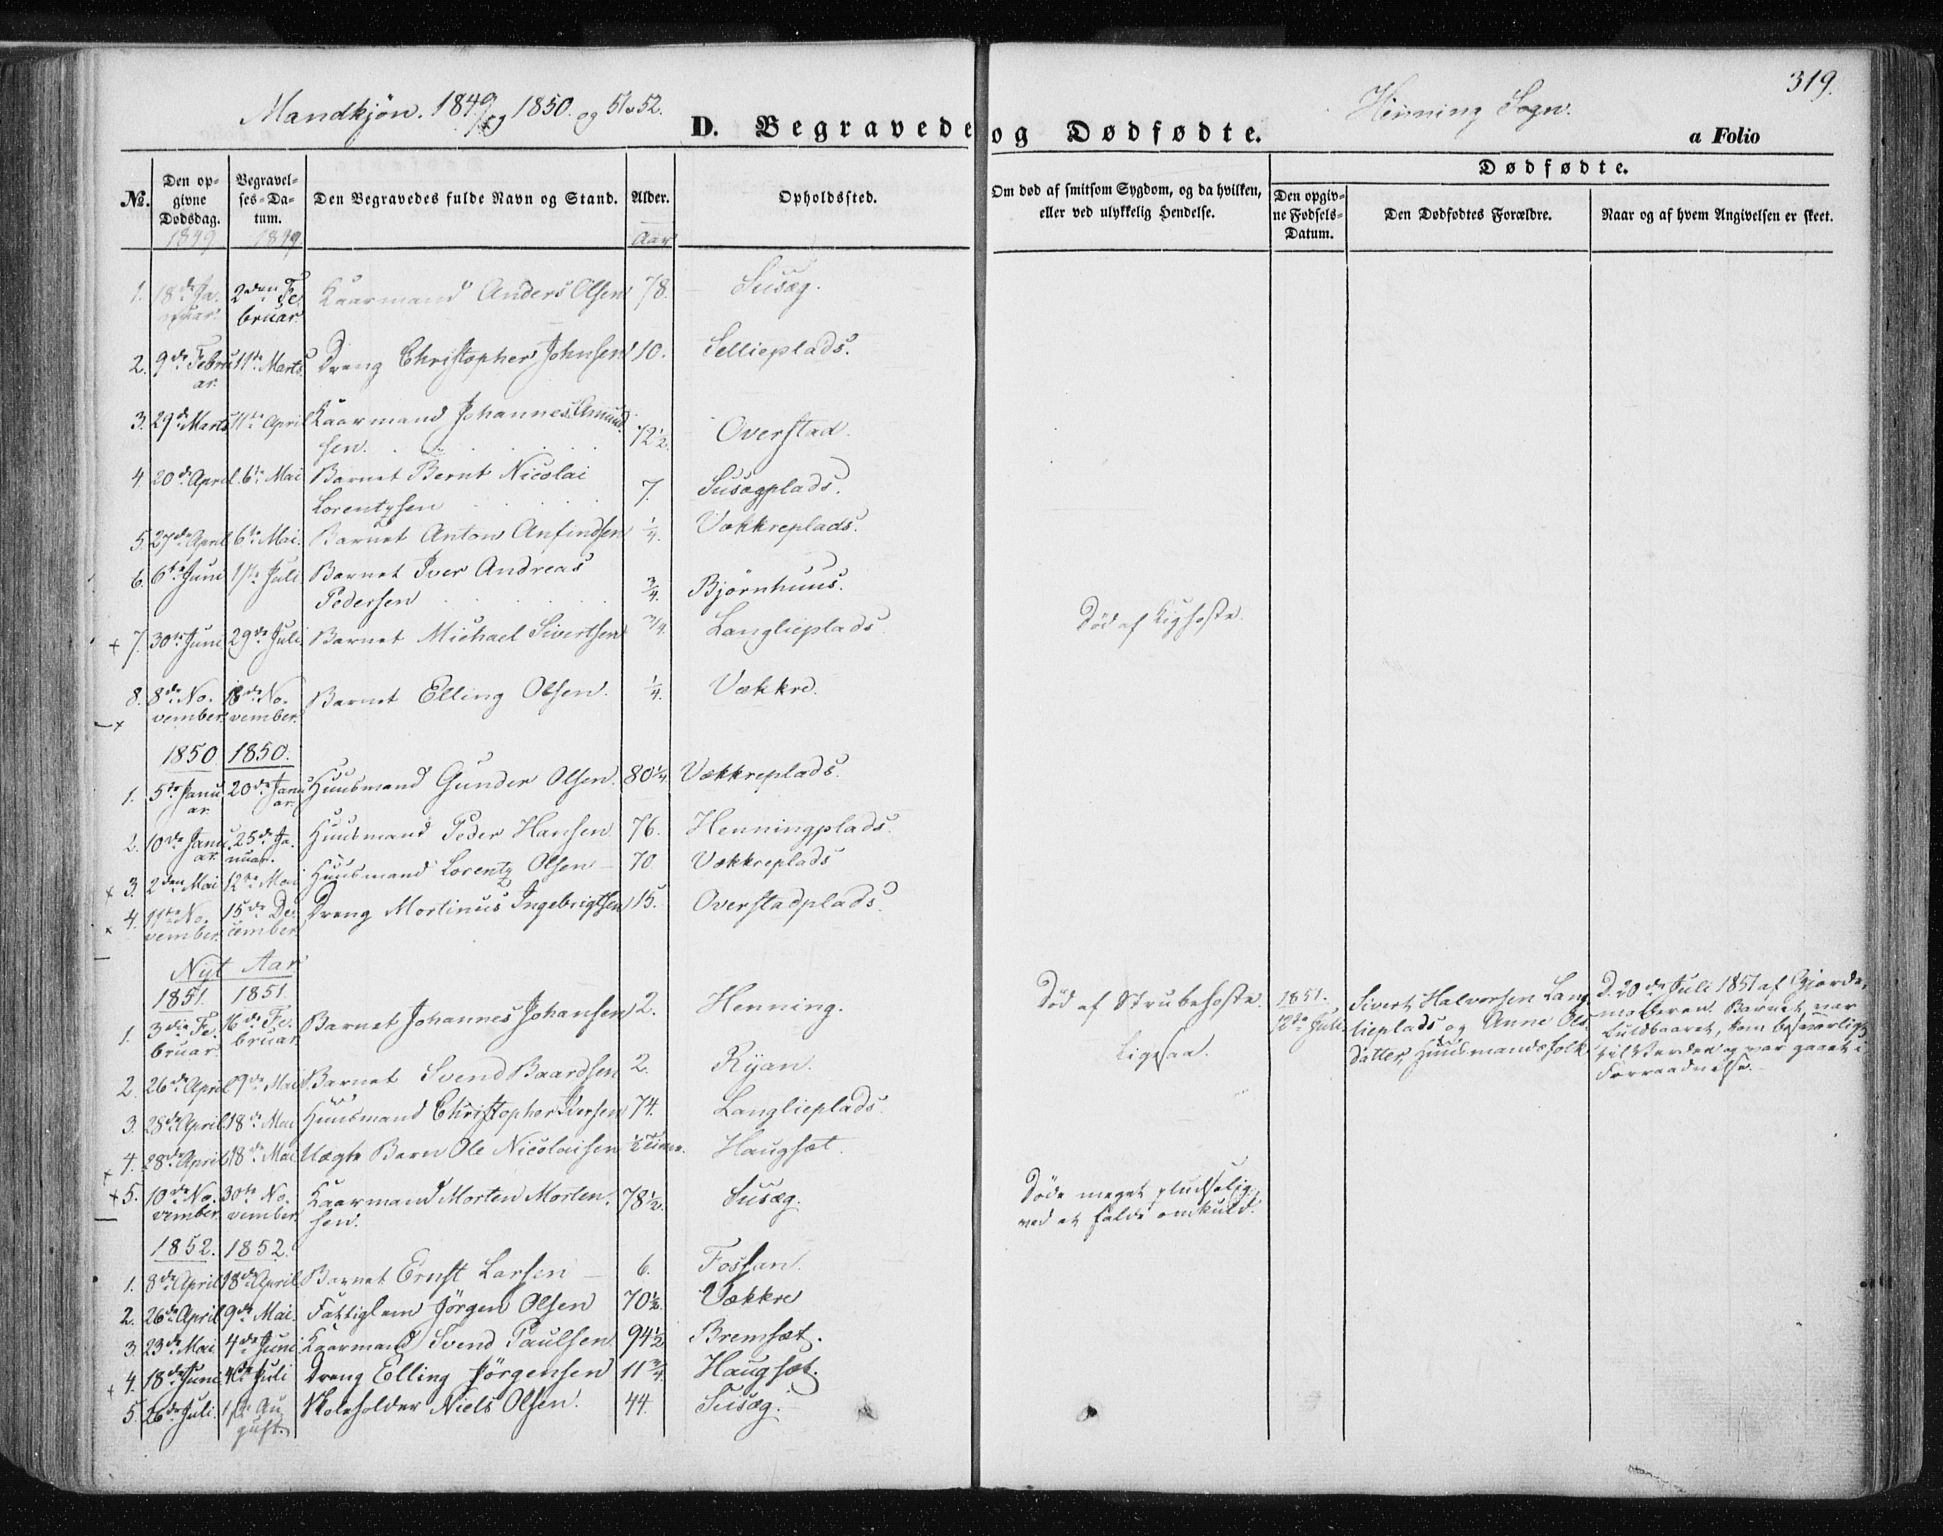 Mandkjøn. 1849 og 1850. og 51 o 52.
D. Begravede og Dødfødte.
Henning Sogn.
319.
a Folio
No.
Den opgivne Dødsdag.
Begravelses-Datum.
Den Begravedes fulde Navn og Stand.
Alder.
Opholdssted.
Om død af smitsom Sygdom, og da hvilken, eller ved ulykkelig Hendelse.
Dødfødte.
Den opgivne Fødsels-Datum.
Den Dødfødtes Forældre.
Naar og af hvem Angivelsen er skeet.
1849 1849 Aar
1. 18de Januar. 2den Februar. Kaarmand Anders Olsen 78. Susæg.
2. 9de Februar. 11te Marts. Dreng Christopher Johnsen 10. Sellieplads.
3. 29de Marts 11te April Kaarmand Johannes Amundsen. 72 1/2. Overstad.
4. 20de April. 6te Mai Barnet Bernt Nicolai Lorentzsen 7. Susægplads.
5. 27de April 6te Mai. Barnet Anton Anfindsen 1/4. Vækkreplads.
6. 6te Juni 1ste Juli. Barnet Iver Andreas Pedersen 3/4. Bjørnhuus.
+ 7. 30te Juni 29de Juli. Barnet Michael Sivertsen 3/4. Langlieplads Død af Kighoste.
8. 8de November. 18de November. Barnet Elling Olsen. 1/4. Vækkre.
1850 1850.
1. 5te Januar. 20de Januar. Huusmand Gunder Olsen. 80 1/4. Vækkreplads.
2. 10de Januar. 25de Januar. Huusmand Peder Hansen 76. Henningplads.
x 3. 2den Mai 12te Mai Huusmand Lorentz Olsen 70 Vækkreplads
x 4. 11te November. 15de December. Dreng Mortinus Ingebrigtsen 15. Overstadplads.
Nyt Aar
1851. 1851
1. 3die Februar. 16de Februar Barnet Johannes Johansen 2. Henning. Død af Strubehoste.
1851. 12te Juli. Sivert Halvorsen Langlieplads og Anne Olsdatter, Huusmandsfolk
D. 20de Juli 1851 af Gjordemoderen. Barnet var fuldbaaret, kom besværligt til Verden og var gaaet i Forraadnelse.
2. 26de April 9de Mai Barnet Svend Baardsen 2. Ryan. Ligesaa.
3. 28de April 18de Mai Huusmand Christopher Iversen 74. Langlieplads.
4. 28de April 18de Mai. Uægte Barn Ole Nicolaisen 1/2 Time. Haugsæt.
+ 5. 10de November. 30te November. Kaarmand Morten Mortensen. 78 1/2. Susæg. Døde meget pludselig ved at falde omkuld.
1852. 1852.
1. 8de April 18de April Barnet Ernst Larsen 6. Fossan.
2. 26de April 9de Mai. Fattiglem Jørgen Olsen 70 1/2. Vækkre
3. 23de Mai 4de Juni. Kaarmand Svend Paulsen 94 1/2 Bremsæt.
4. 18de Juni 4de Juli Dreng Elling Jørgensen 11 3/4. Haugsæt.
5. 26de Juli. 1ste August. Skoleholder Niels Olsen. 44. Susæg.